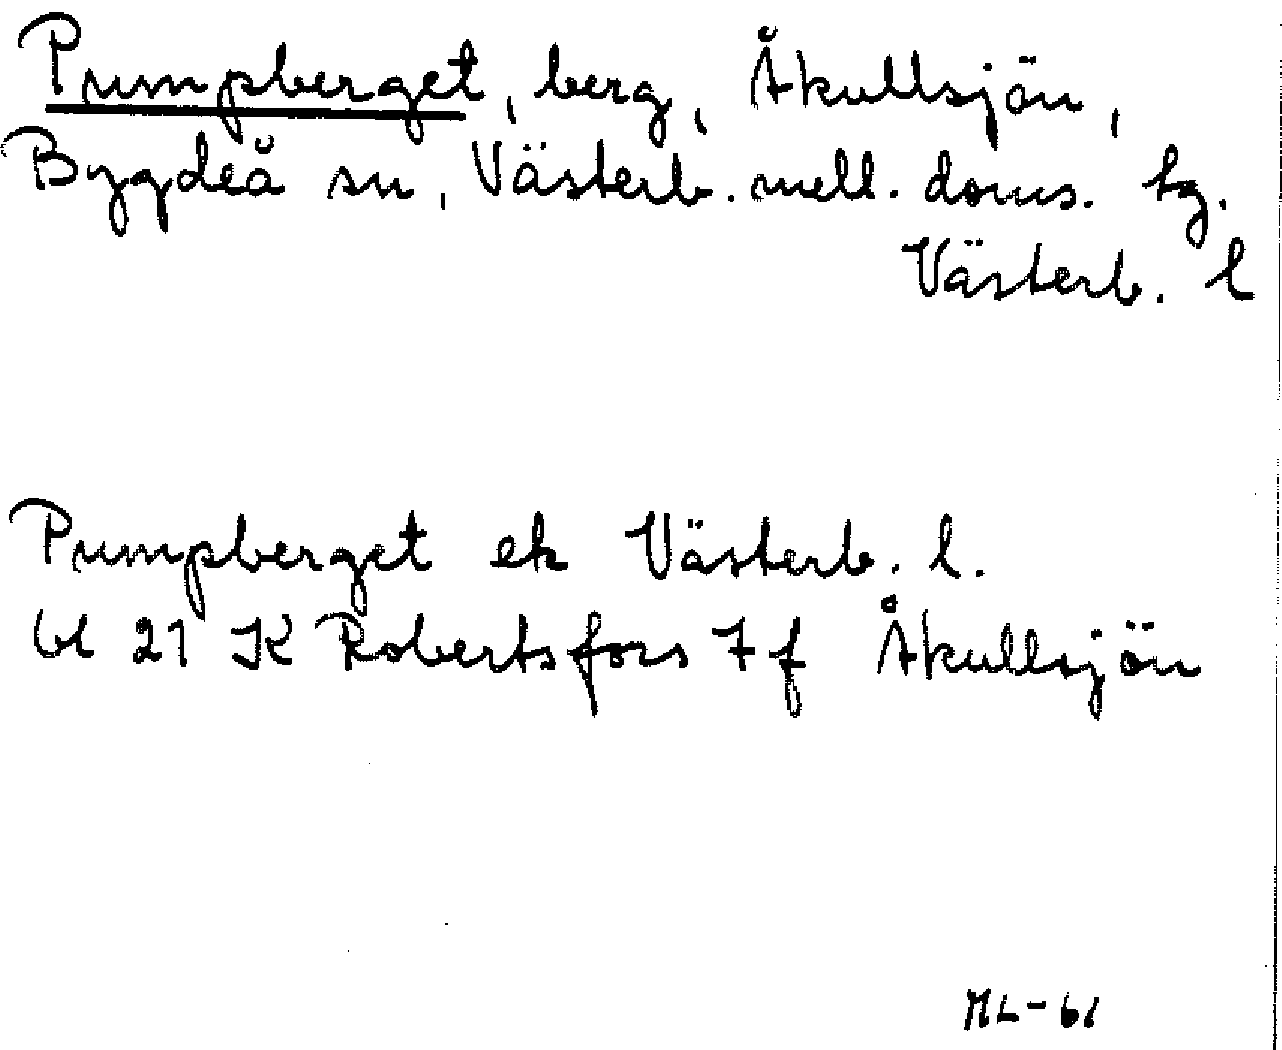 Pumpberget, berg, Åkullsjön,
Bygdeå sn, Västerb. mell. doms. tg.
Västerb. l
Pumpberget ek Västerb. l.
bl 21 K Robertsfors 7 f Åkullsjön
ML-61